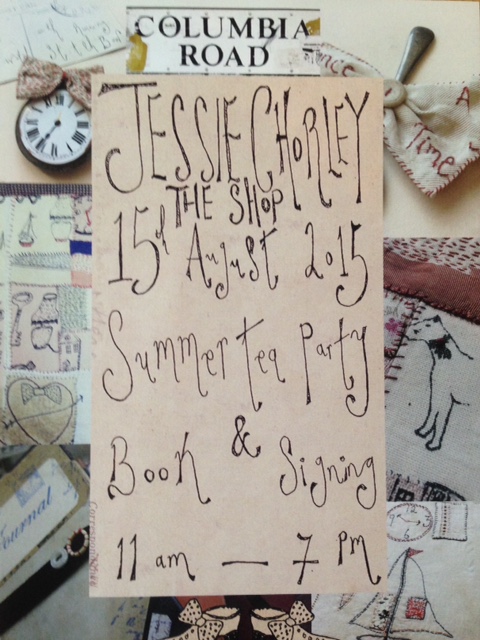 COLUMBIA
ROAD
JESSIE CHORLEY
THE SHOP
15th August 2015
Summer tea Party
&
Book Signing
11 am — 7 PM
once
A
Time
Journal